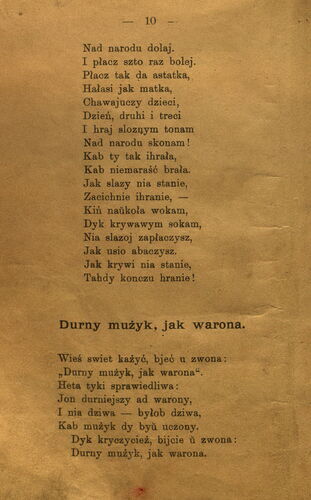 — 10 —
Nad narodu dolaj.
I płacz szto raz bolej.
Płacz tak da astatka,
Hałasi jak matka,
Chawajuczy dzieci,
Dzień, druhi i treci
I hraj sloznym tonam
Nad narodu skonam!
Kab ty tak ihrała,
Kab niemaraść brała.
Jak slazy nia stanie,
Zacichnie ihranie, —
Kiń naŭkoła wokam,
Dyk krywawym sokam,
Nia slazoj zapłaczysz,
Jak usio abaczysz.
Jak krywi nia stanie,
Tahdy konczu hranie!
Durny mużyk, jak warona.
Wieś swiet każyć, bjeć u zwona:
„Durny mużyk, jak warona“.
Heta tyki sprawiedliwa:
Jon durniejszy ad warony,
I nia dziwa — byłob dziwa,
Kab mużyk dy byŭ uczony.
Dyk kryczycież, bijcie ŭ zwona:
Durny mużyk, jak warona.